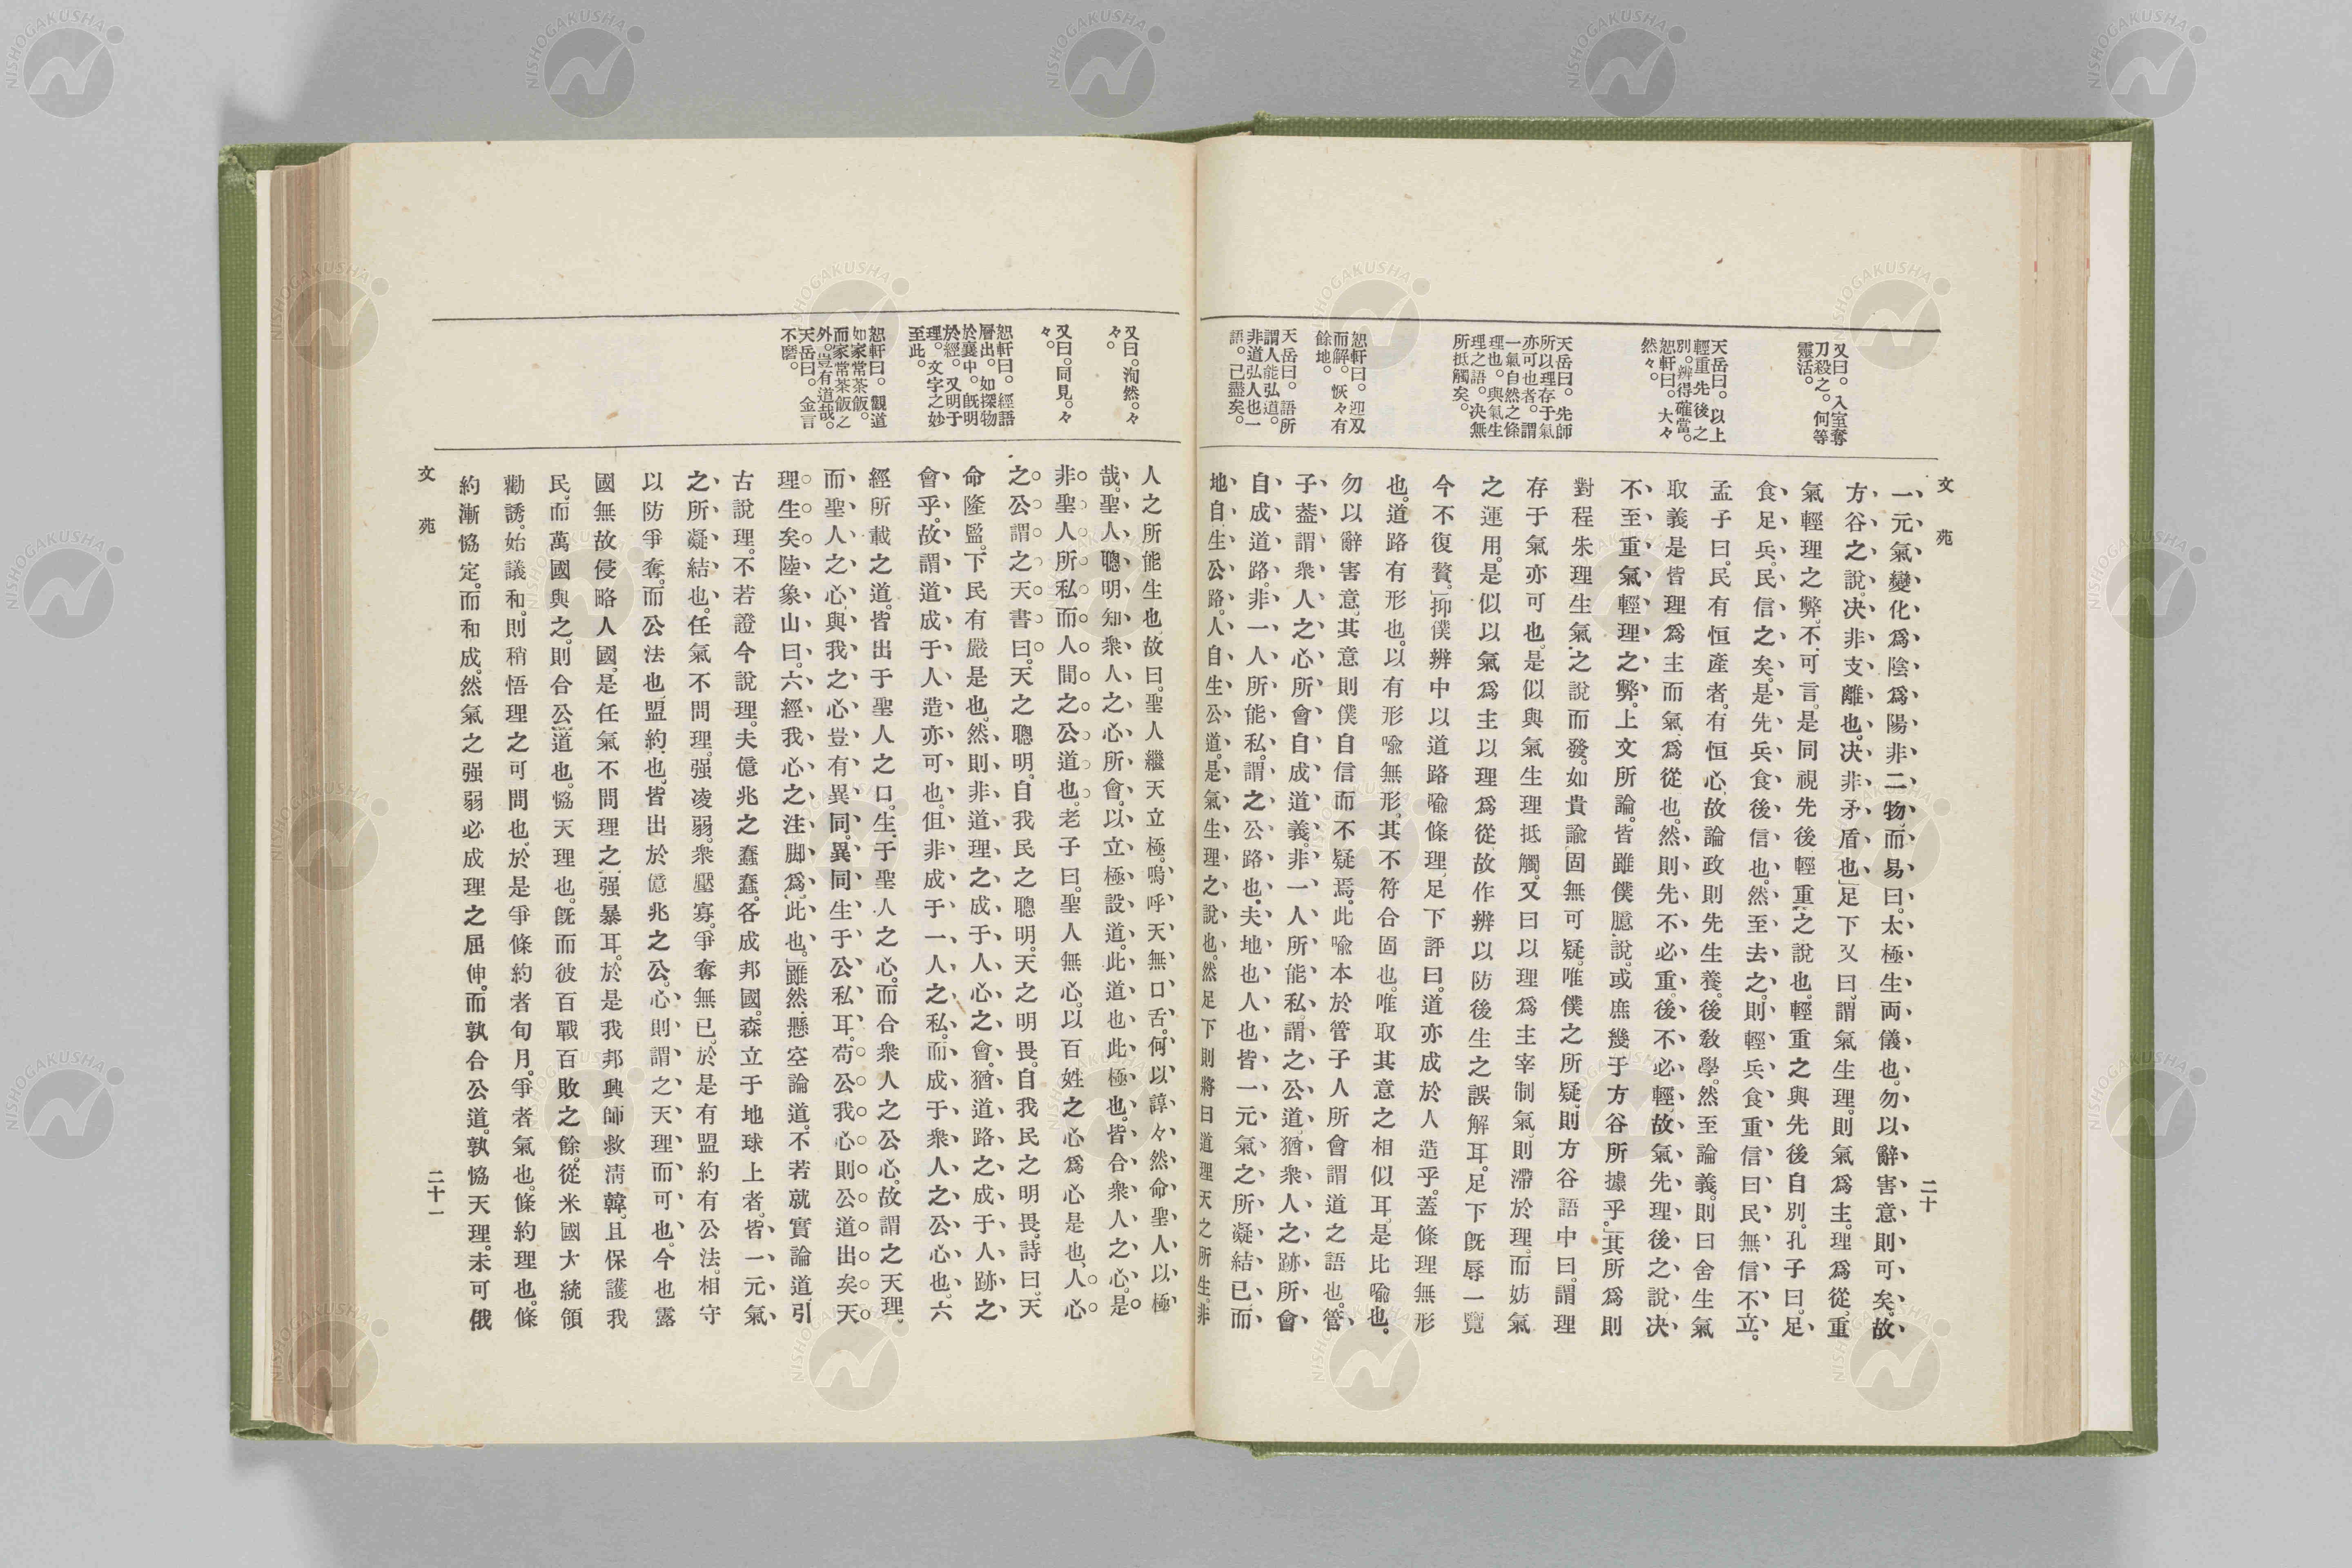 文苑
二十
又曰。入室奪
刀殺之。何等
靈活。
天岳曰。以上
輕重先後之
別。辨得確當。
恕軒曰。大々
然々。
天岳曰。先師
所以理存于氣
亦可也者。謂
一氣自然之條
理也。與氣生
理之語。決無
所抵觸矣。
恕軒曰。迎刃
而解。恢々有
餘地。
天岳曰。語所
謂人能弘道。
非道弘人也一
語。已盡矣。
一元氣變化爲陰爲陽非二物而易曰。太極生兩儀也。勿以辭害意則可矣。故
方谷之說。決非支離也。決非矛盾也」足下又曰。謂氣生理。則氣爲主。理爲從。重
氣輕理之弊。不可言。是同視先後輕重之說也。輕重之與先後自別。孔子曰。足
食足兵。民信之矣。是先兵食後信也。然至去之。則輕兵食重信曰民無信不立。
孟子曰。民有恒產者。有恒心。故論政則先生養。後敎學。然至論義。則曰舍生氣
取義是皆理爲主而氣爲從也。然則先不必重。後不必輕。故氣先理後之說。決
不至重氣輕理之弊。上文所論。皆雖僕臆說。或庶幾于方谷所據乎。」其所爲則
對程朱理生氣之說而發。如貴諭固無可疑。唯僕之所疑。則方谷語中曰。謂理
存于氣亦可也。是似與氣生理抵觸。又曰以理爲主宰制氣。則滯於理。而妨氣
之運用。是似以氣爲主以理爲從。故作辨以防後生之誤解耳。足下旣辱一覽
今不復贅。」抑僕辨中以道路喩條理。足下評曰。道亦成於人造乎。蓋條理無形
也。道路有形也。以有形喩無形。其不符合固也。唯取其意之相似耳。是比喩也。
勿以辭害意。其意則僕自信而不疑焉。此喩本於管子人所會謂道之語也。管
子葢謂衆人之心所會自成道義。非一人所能私。謂之公道。猶衆人之跡所會
自成道路。非一人所能私。謂之公路也。夫地也人也皆一元氣之所凝結已而
地自生公路。人自生公道。是氣生理之說也。然足下則將曰道理天之所生。非
又曰。洵然。々
々。
又曰。同見。々
々。
恕軒曰。經語
層出。如探物
於囊中。旣明
於經。又明于
理。文字之妙
至此。
恕軒曰。觀道
如家常茶飯。
而家常茶飯之
外。豈有道哉。
天岳曰。金言
不磨。
人之所能生也。故曰。聖人繼天立極。嗚呼天無口舌。何以諄々然命聖人以極
哉。聖人聰明知衆人之心所會。以立極設道。此道也此極也。皆合衆人之心。是
非聖人所私而人間之公道也。老子曰。聖人無心。以百姓之心爲心是也。人心
之公謂之天。書曰。天之聰明。自我民之聰明。天之明畏。自我民之明畏。詩曰。天
命隆監。下民有嚴是也。然則非道理之成于人心之會。猶道路之成于人跡之
會乎。故謂道成于人造亦可也。但非成于一人之私。而成于衆人之公心也。六
經所載之道。皆出于聖人之口。生于聖人之心。而合衆人之公心。故謂之天理。
而聖人之心。與我之心豈有異同。異同生于公私耳。苟公我心則公道出矣天
理生矣。陸象山曰。六經我心之注脚爲此也。」雖然懸空論道。不若就實論道。引
古說理。不若證今說理。夫億兆之蠢蠢。各成邦國。森立于地球上者。皆一元氣
之所凝結也。任氣不問理。强凌弱。衆壓寡。爭奪無已。於是有盟約有公法。相守
以防爭奪。而公法也盟約也。皆出於億兆之公心。則謂之天理而可也。今也露
國無故侵略人國。是任氣不問理之强暴耳。於是我邦興師救淸韓。且保護我
民。而萬國與之。則合公道也。恊天理也。旣而彼百戰百敗之餘。從米國大統領
勸誘。始議和。則稍悟理之可問也。於是爭條約者旬月。爭者氣也。條約理也。條
約漸恊定。而和成。然氣之强弱必成理之屈伸。而孰合公道。孰恊天理。未可俄
文苑
二十一